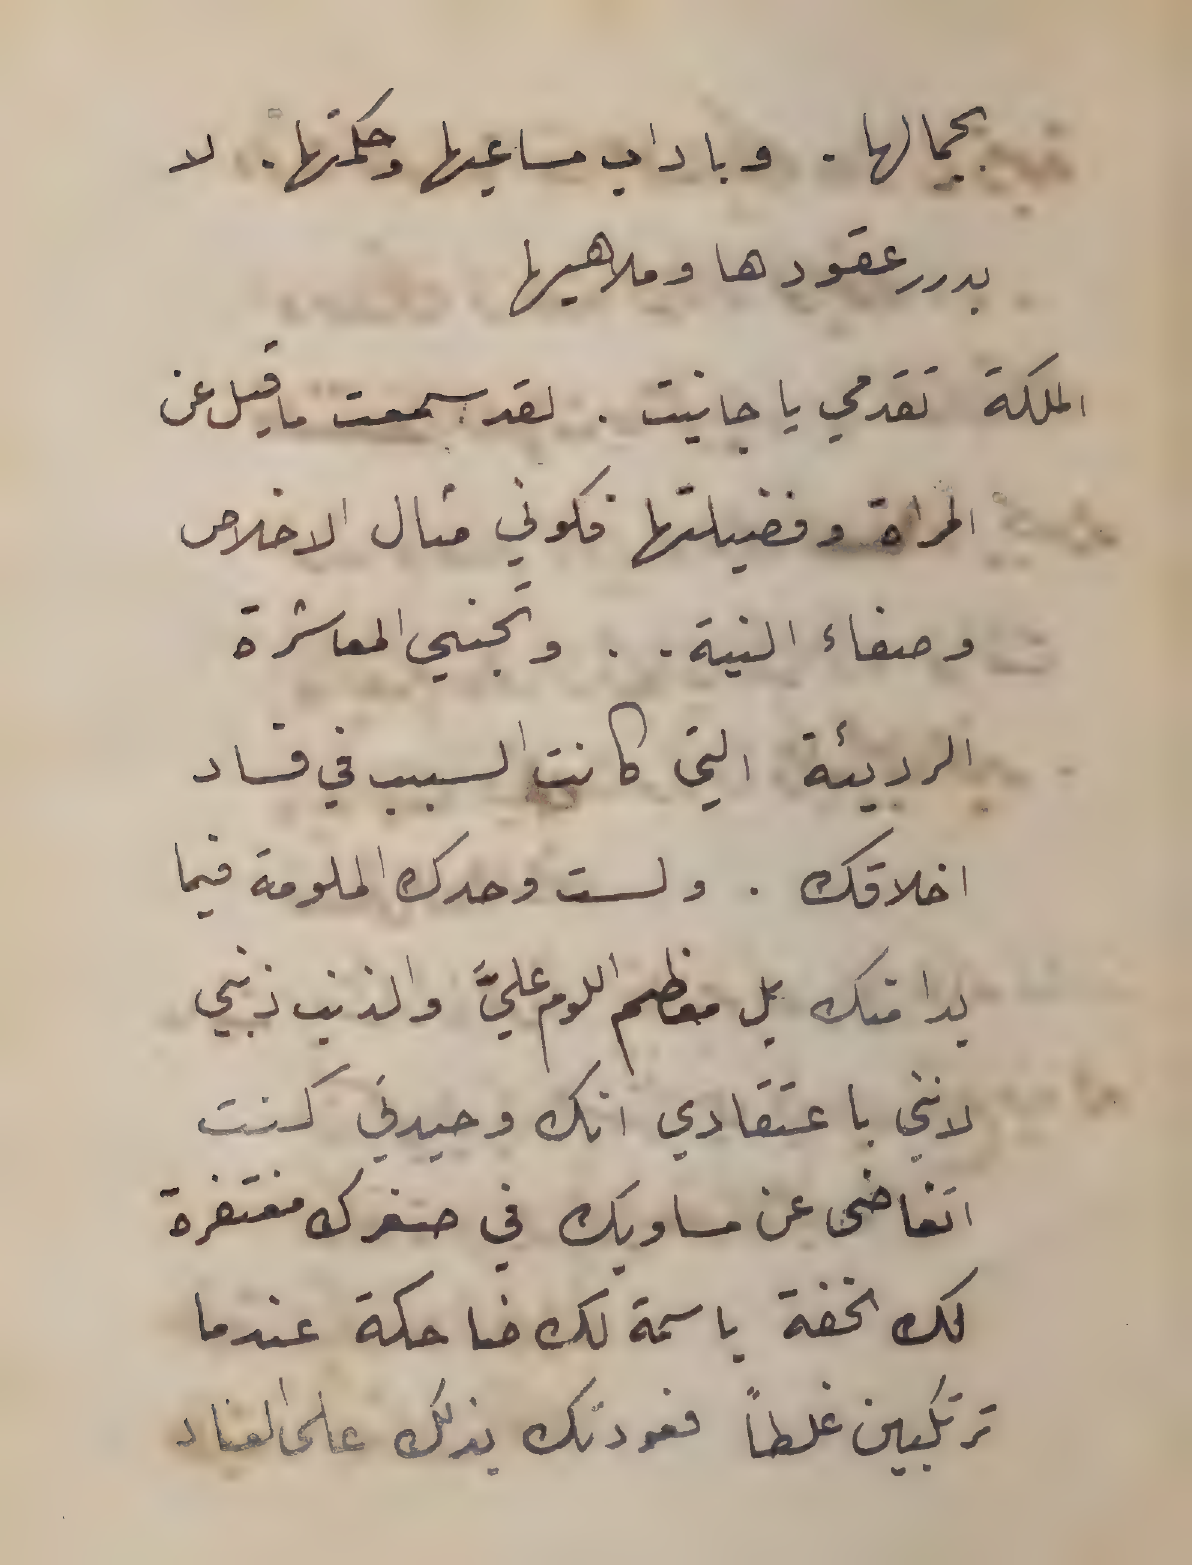 بجمالها . وباداب مساعيها وحكمتها . لا
بدرر عقودها وملاهيها
الملكة تقدمي يا جانيت . لقد سمعت ما قيل عن
المراة وفضيلتها فكوني مثال الاخلاص
وصفاء النية . . وتجنبي المعاشرة
الرديئة التي كانت السبب في فساد
اخلاقك . ولست وحدك الملومة فيما
بدا منك بل معظم اللوم عليَّ والذنب ذنبي
لانني باعتقادي انك وحيدتي كنت
اتغاضى عن مساويك في صغرك مغتفرة
لك الخفة باسمة لك ضاحكة عندما
ترتكبين غلطاً فعودتك بذلك على العناد